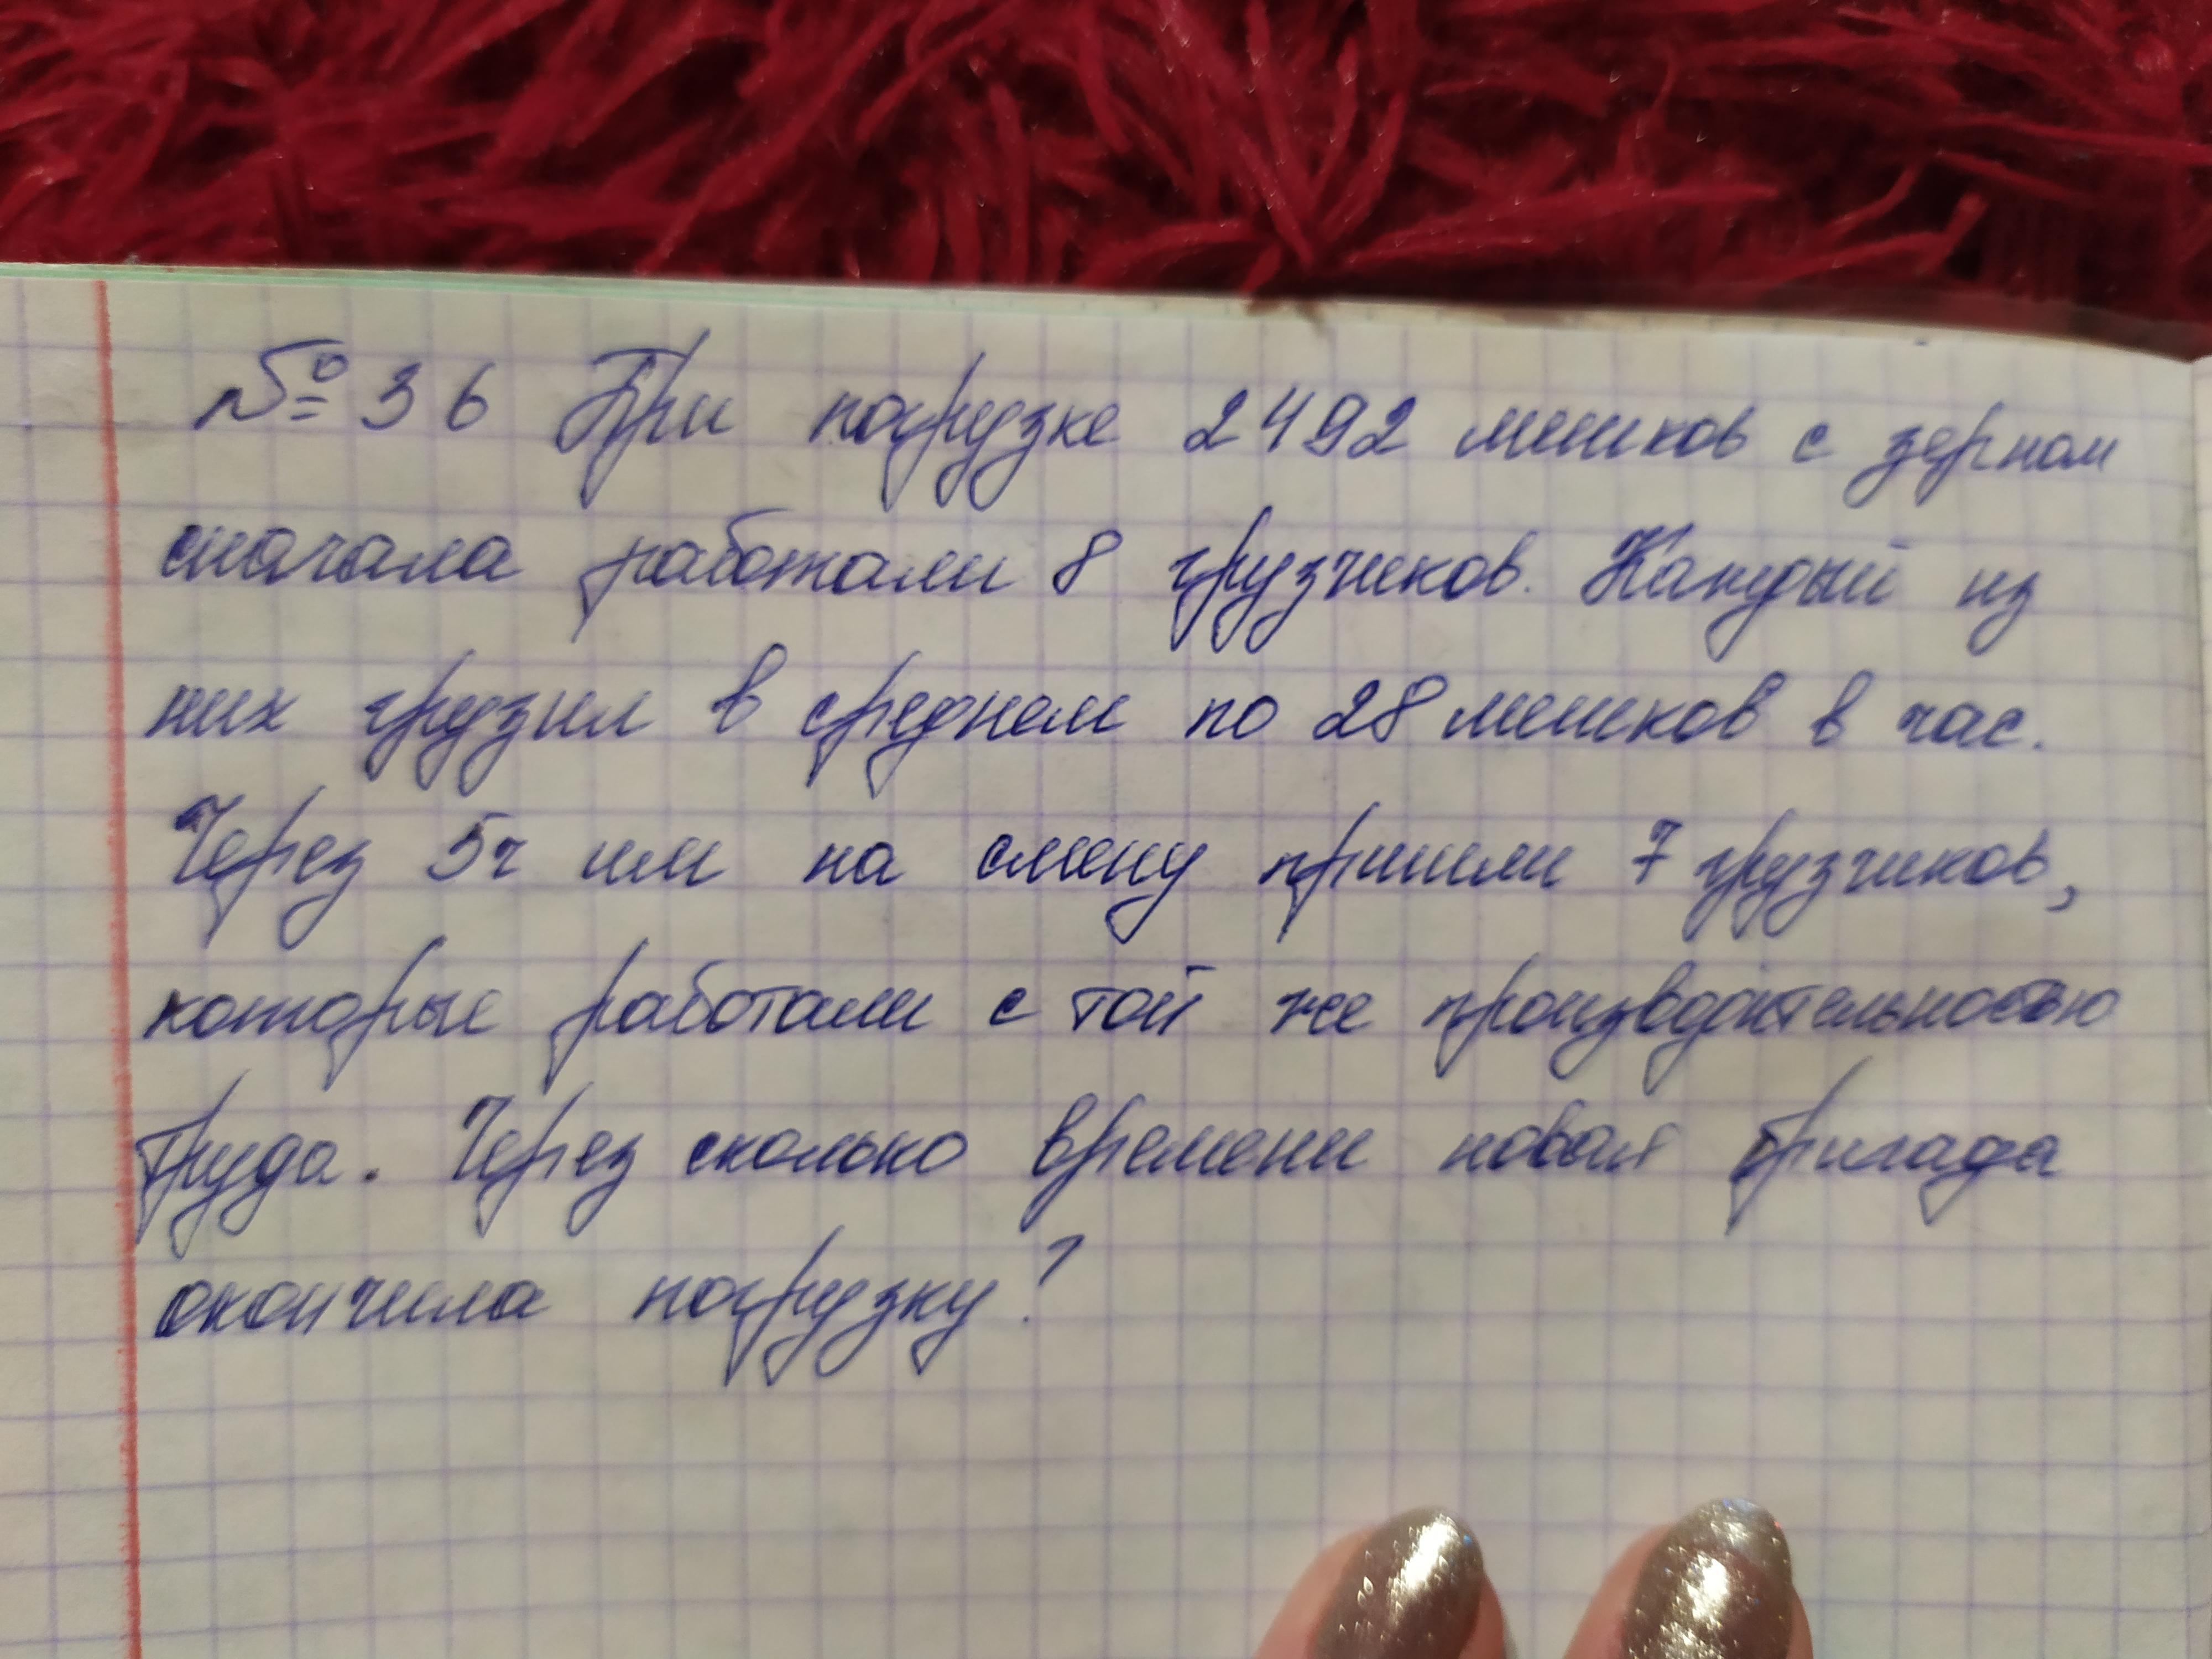 №36 При погрузке 2492 мешков с зерном
сначала работали 8 грузчиков. Каждый из
них грузил в среднем по 28 мешков в час.
Через 5ч им на смену пришли 7 грузчиков,
которые работали с той же производительностью
труда. Через сколько времени новая бригада
окончила погрузку?